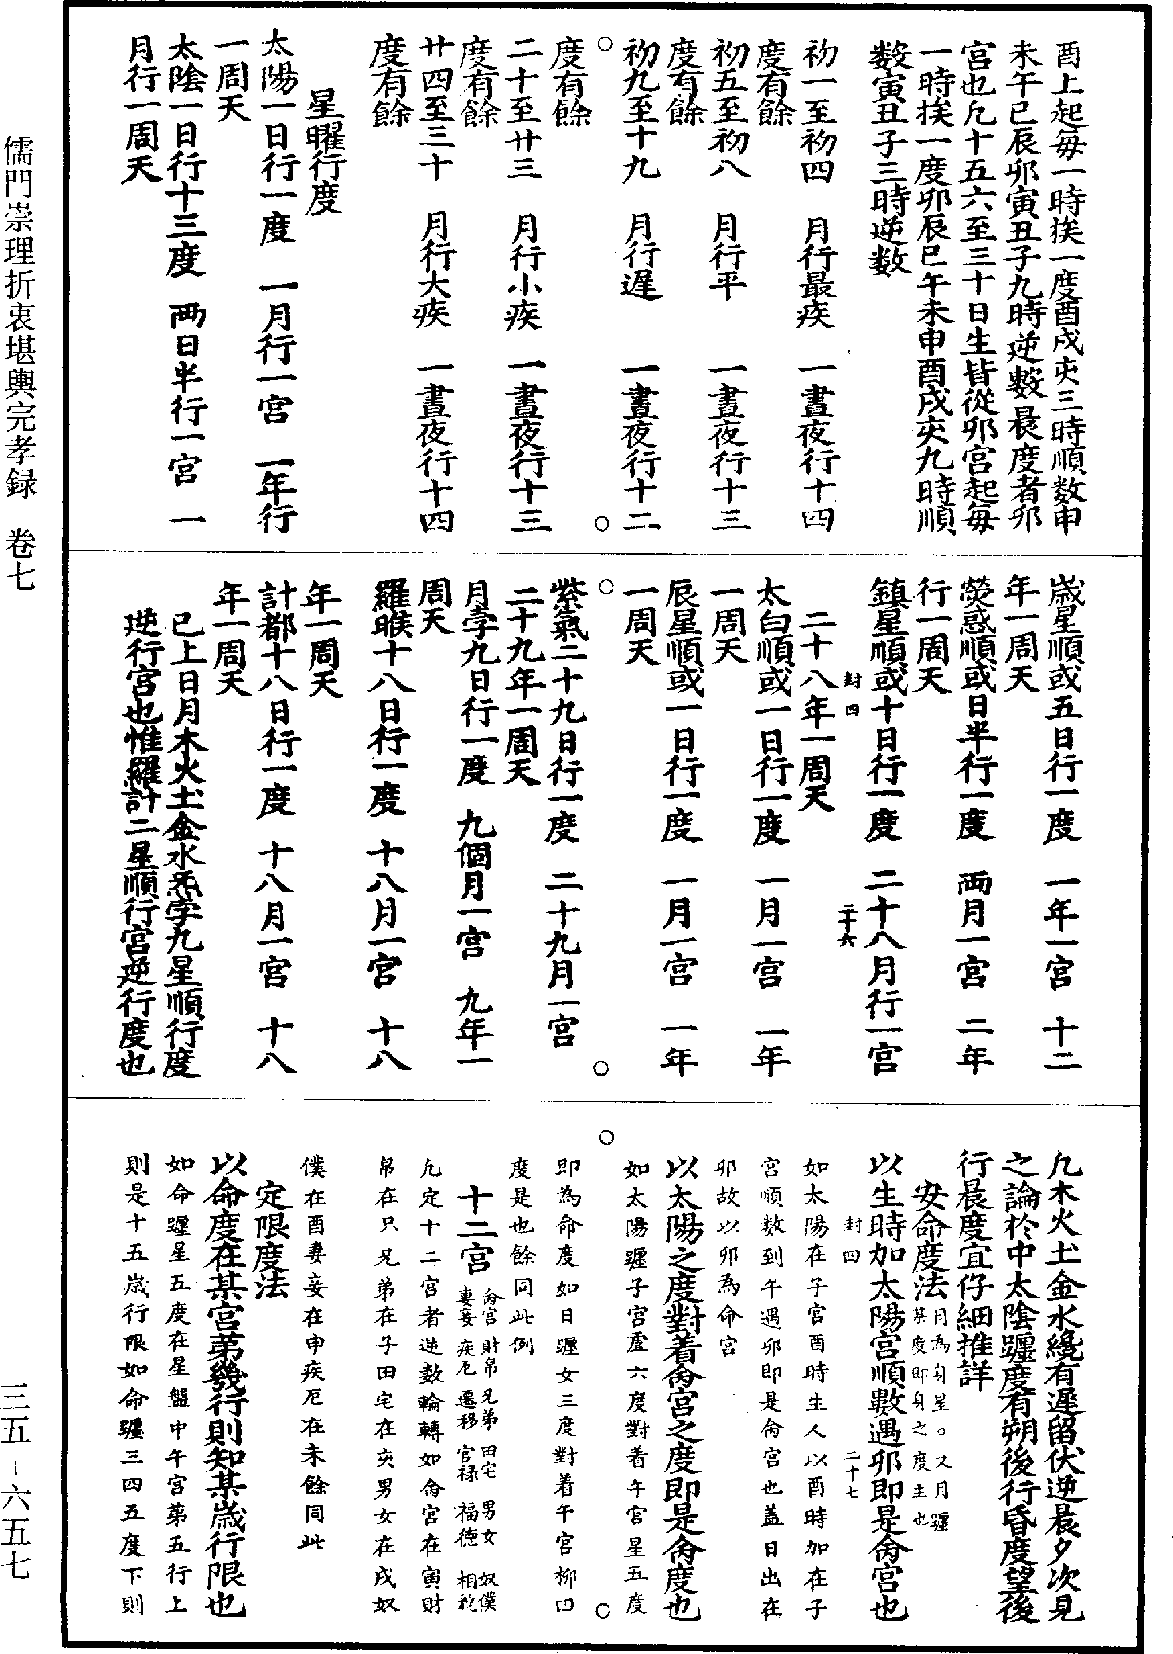 酉上起每一時挨一度酉戌亥三時順数申
未午巳辰卯寅丑子九時逆數晨度者卯
宮也凡十五六至三十日生皆從卯宮起每
一時挨一度卯辰巳午未申酉戌亥九時順
數寅丑子三時逆數
初一至初四　月行最疾　一晝夜行十四
度有餘
初五至初八　月行平　一晝夜行十三
度有餘
初九至十九　月行遲　一晝夜行十二
度有餘
二十至廿三　月行小疾　一晝夜行十三
度有餘
廿四至三十　月行大疾　一晝夜行十四
度有餘
星曜行度
太陽一日行一度　一月行一宮　一年行
一周天
太陰一日行十三度　兩日半行一宮　一
月行一周天
歲星順或五日行一度　一年一宮　十二
年一周天
熒惑順或日半行一度　兩月一宮　二年
行一周天
鎮星順或十日行一度　二十八月行一宮
封四　二十六
二十八年一周天
太白順或一日行一度　一月一宮　一年
一周天
辰星順或一日行一度　一月一宮　一年
一周天
紫氣二十九日行一度　二十九月一宮
二十九年一周天
月孛九日行一度　九個月一宮　九年一
周天
羅睺十八日行一度　十八月一宮　十八
年一周天
計都十八日行一度　十八月一宮　十八
年一周天
已上日月木火土金水炁孛九星順行度
逆行宮也惟羅計二星順行宮逆行度也
凡木火土金水纔有遲留伏逆晨夕次見
之論於中太陰躔度有朔後行昏度望後
行晨度宜仔細推詳
安命度法 月為身星○又月躔
某度即身之度主也
以生時加太陽宮順數遇卯即是命宮也
封四　二十七
如太陽在子宮酉時生人以酉時加在子
宮順数到午遇卯即是命宮也蓋日出在
卯故以卯為命宮
以太陽之度對着命宮之度即是命度也
如太陽躔子宮虛六度對着午宮星五度
即為命度如日躔女三度對着午宮柳四
度是也餘同此例
十二宮 命宮 財帛 兄弟 田宅 男女 奴僕
妻妾 疾厄 遷移 官祿 福德 相貌
凡定十二宮者逆數輪轉如命宮在寅財
帛在丑兄弟在子田宅在亥男女在戌奴
僕在酉妻妾在申疾厄在未餘同此
定限度法
以命度在某宮第幾行則知某歲行限也
如命躔星五度在星盤中午宮第五行上
則是十五歲行限如命躔三四五度下則
儒門崇理折衷堪輿完孝録　卷七
三五－六五七